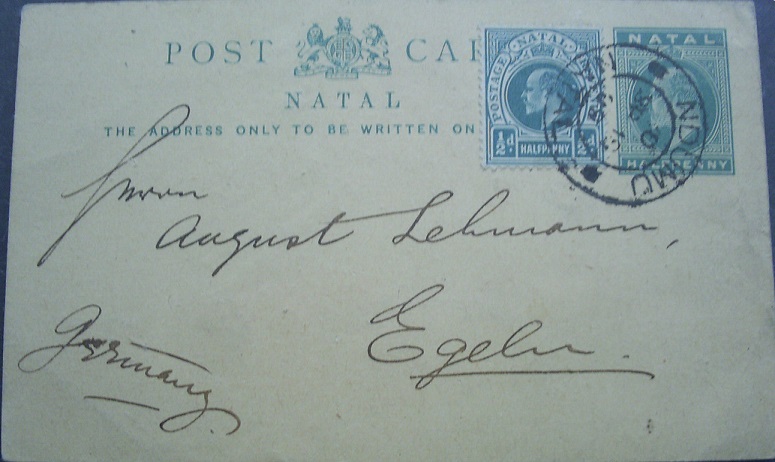 POST CAR
NATAL
THE ADDRESS ONLY TO BE WRITTEN ON
POSTAGE NATAL
½d. HALFPENNY
NATAL
HALFPENNY
NDUMU
NATAL
Herrn
August Lehmann,
Egeln.
Germany